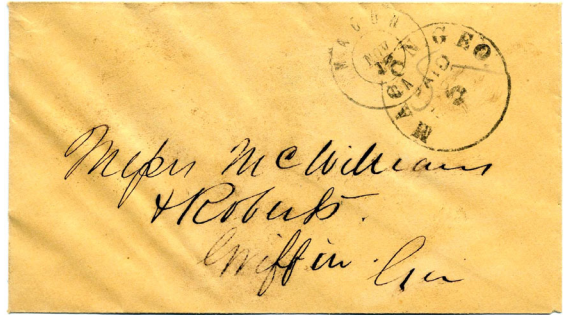 MACON
NOV
MACON GEO.
PAID
Messrs McWilliams
& Roberts.
Griffin. Geo